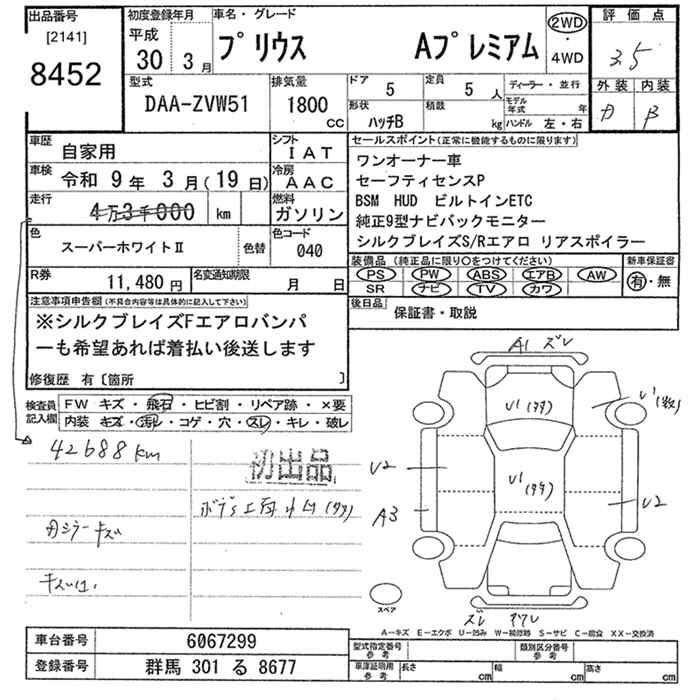 出品番号
[2141]
8452
初度登録年月
平成
30年 3月
車名・グレード
プリウス Aプレミアム
2WD
・
4WD
評価点
3.5
外装 内装
B
型式
DAA-ZVW51
排気量
1800 cc
ドア 5
定員 5人
ディーラー・並行
形状 ハッチB
積載 kg
モデル年式 年
ハンドル 左・右
車歴 自家用
シフト IAT
車検 令和 9年 3月(19日)
冷房 AAC
走行 4万3千000 km
燃料 ガソリン
色 スーパーホワイトⅡ
色替
色コード 040
R券 11,480円
名変通知期限 月 日
セールスポイント(正常に機能するものに限ります)
ワンオーナー車
セーフティセンスP
BSM HUD ビルトインETC
純正9型ナビバックモニター
シルクブレイズS/Rエアロ リアスポイラー
装備品(純正品に限り○をつけてください)
PS PW ABS エアB AW
SR ナビ TV カワ
新車保証書
有・無
後日品
保証書・取説
注意事項申告欄(不具合内容等は具体的に記入して下さい)
※シルクブレイズFエアロバンパ
ーも希望あれば着払い後送します
修復歴 有〔箇所 〕
検査員記入欄
FW キズ・飛石・ヒビ割・リペア跡・×要
内装 キズ・汚レ・コゲ・穴・スレ・キレ・破レ
42688km
初出品
A1 ズレ
U1
U1
U1
U2
A3
U2
スペア
ズレ
A−キズ E−エクボ U−凹み W−補修跡 S−サビ C−腐食 XX−交換済
車台番号 6067299
登録番号 群馬 301 る 8677
型式指定番号 参考
類別区分番号 参考
車庫証明用 参考
長さ cm
幅 cm
高さ cm